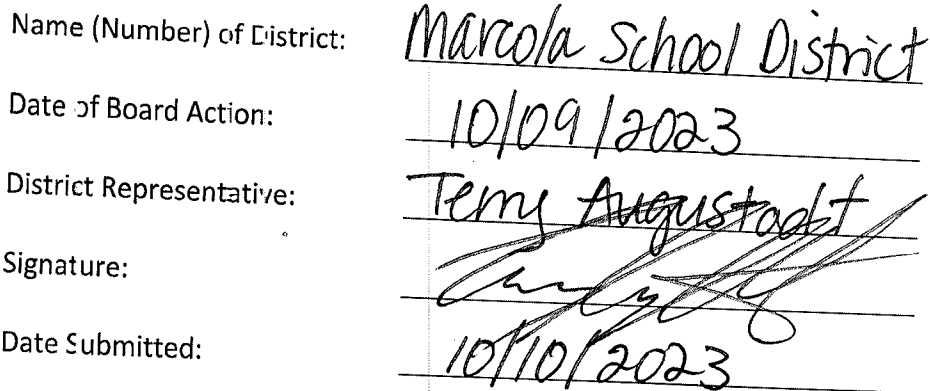 Name (Number) of District: Marcola School District
Date of Board Action: 10/09/2023
District Representative: Terry Augustadt
Signature:
Date Submitted: 10/10/2023